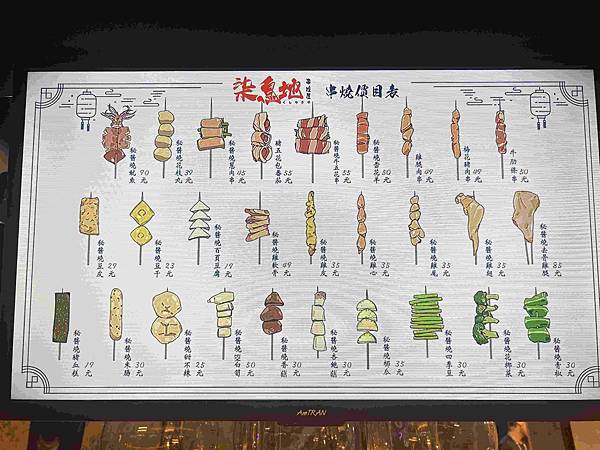 柒息地
串燒價目表
秘醬燒魷魚 90元
秘醬燒花枝丸 39元
秘醬燒蔥肉串 45元
豬五花包番茄 55元
秘醬燒牛五花串 55元
秘醬燒雪花羊 50元
雞腿肉串 49元
梅花豬肉串 49元
牛肋條串 50元
秘醬燒豆皮 29元
秘醬燒豆干 23元
秘醬燒百頁豆腐 19元
秘醬燒雞軟骨 49元
秘醬燒雞皮 35元
秘醬燒雞心 35元
秘醬燒雞尾 35元
秘醬燒雞翅 35元
秘醬燒去骨雞腿 85元
秘醬燒豬血糕 19元
秘醬燒米腸 30元
秘醬燒甜不辣 25元
秘醬燒筊白筍 50元
秘醬燒香菇 30元
秘醬燒杏鮑菇 30元
秘醬燒櫛瓜 35元
秘醬燒四季豆 30元
秘醬燒花椰菜 30元
秘醬燒青椒 30元
AmTRAN